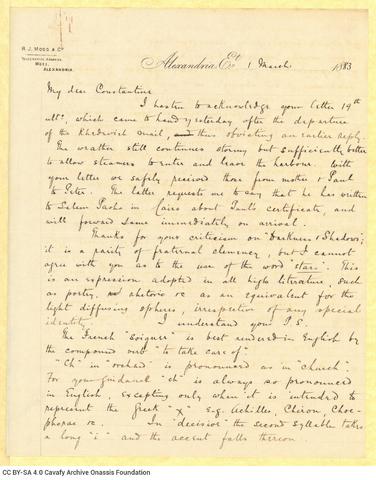 R. J. MOSS & Co
TELEGRAPHIC ADDRESS
MOSS,
ALEXANDRIA.
Alexandria, 1 March 1883
My dear Constantine
I hasten to acknowledge your letter 19th
ulto, which came to hand yesterday after the departure
of the Khedivieh mail, thus obviating an earlier reply.
The weather still continues stormy but sufficiently better
to allow steamers to enter and leave the harbour. With
your letter we safely received those from mother & Paul
to Peter. The latter requests me to say that he has written
to Salem Pacha in Cairo about Paul's certificate, and
will forward same immediately on arrival.
Thanks for your criticism on "Darkness & Shadows";
it is a rarity of fraternal clemency, but I cannot
agree with you as to the use of the word "stars". This
is an expression adopted in all high literature, such
as poetry, rhetoric &c as an equivalent for the
light diffusing spheres, irrespective of any special
identity. I understand your P.S.
The French "soigner" is best rendered in English by
the compound verb "to take care of"
"Ch" in "orchard" is pronounced as in "church".
For your guidance "ch" is always so pronounced
in English, excepting only when it is intended to
represent the Greek "χ" e.g. Achilles, Chiron, Choe-
phorae &c. In "decisive" the second syllable takes
a long "i" and the accent falls thereon.
CC BY-SA 4.0 Cavafy Archive Onassis Foundation